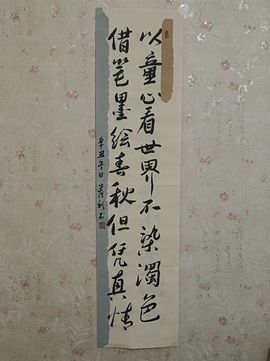 以童心看世界不染濁色
借笔墨绘春秋但凭真情
辛丑冬日